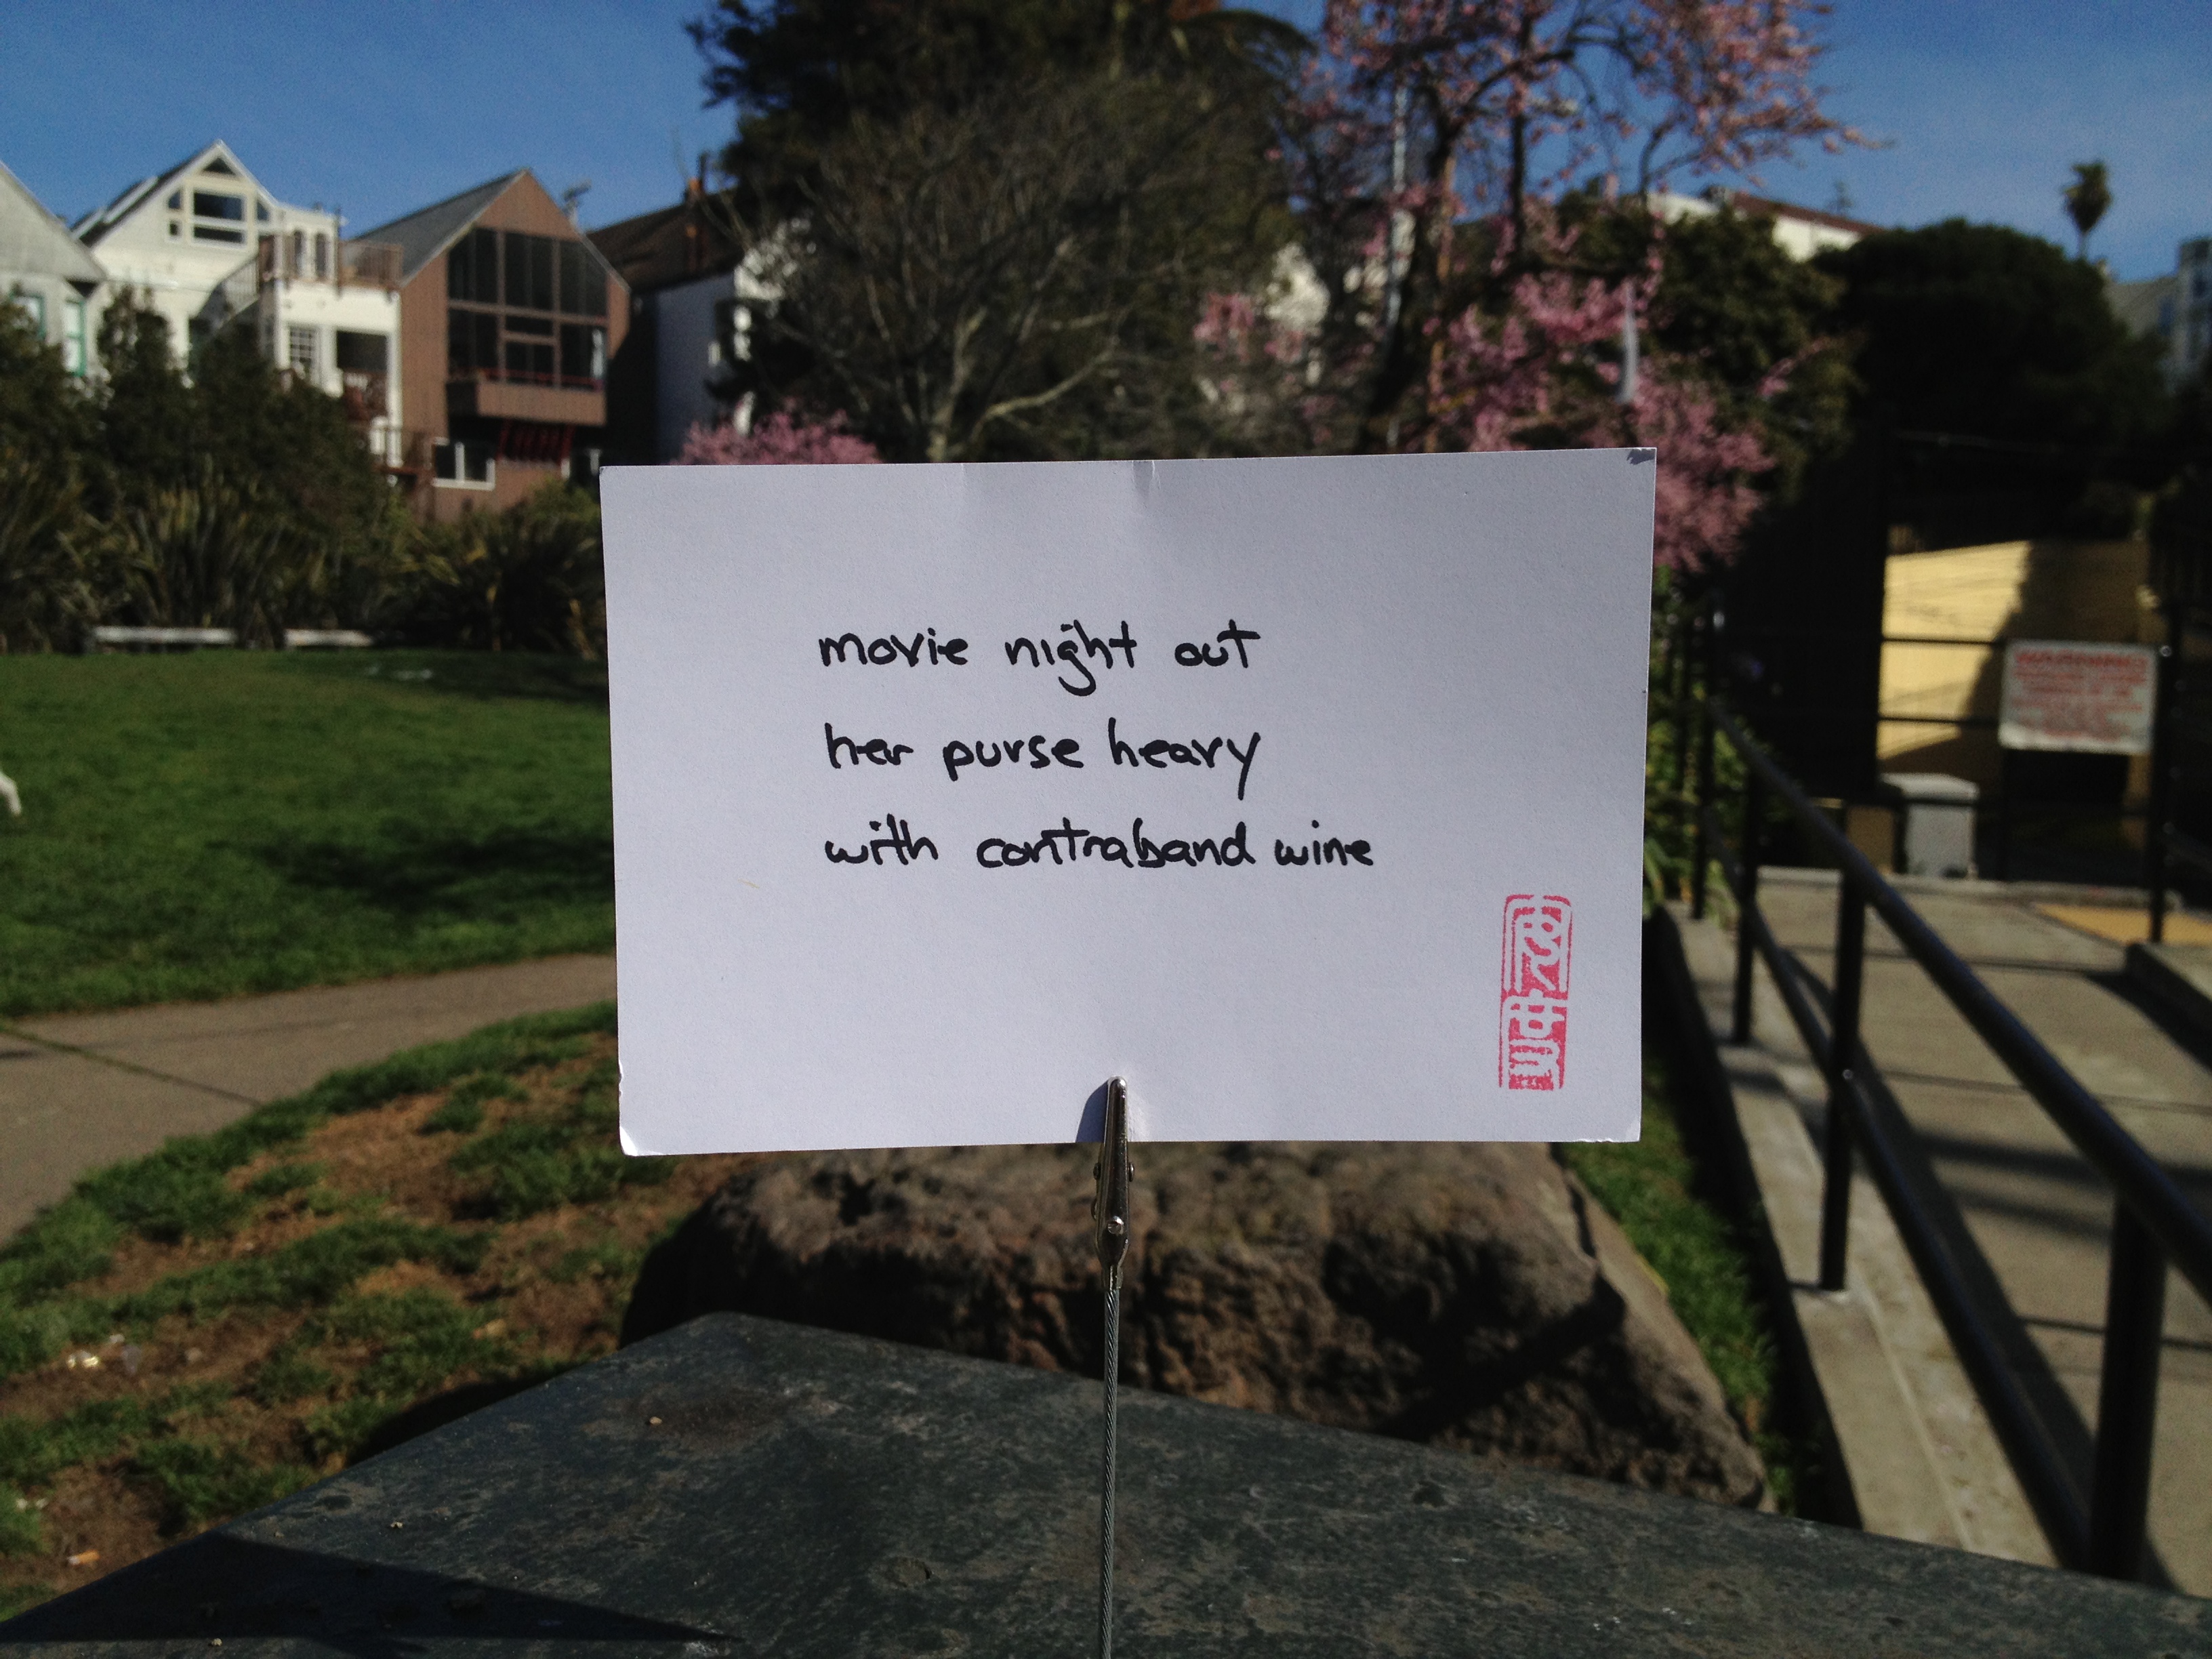 movie night out
her purse heavy
with contraband wine
WARNING!